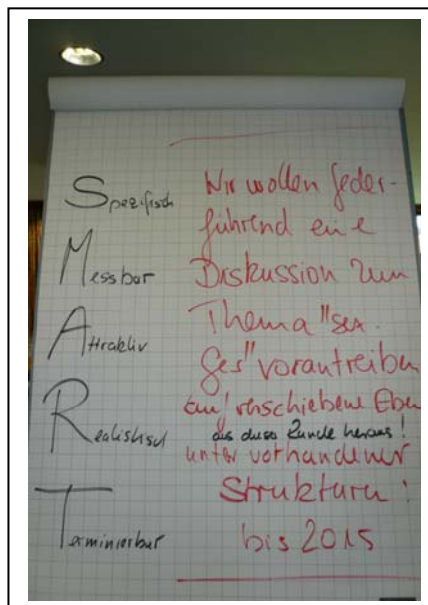 Spezifisch
Messbar
Attraktiv
Realistisch
Terminierbar
Wir wollen feder-
führend eine
Diskussion zum
Thema "sex.
Ges" vorantreiben
auf verschiedene Eben
aus dieser Runde heraus!
unter vorhandener
Strukturen:
bis 2015